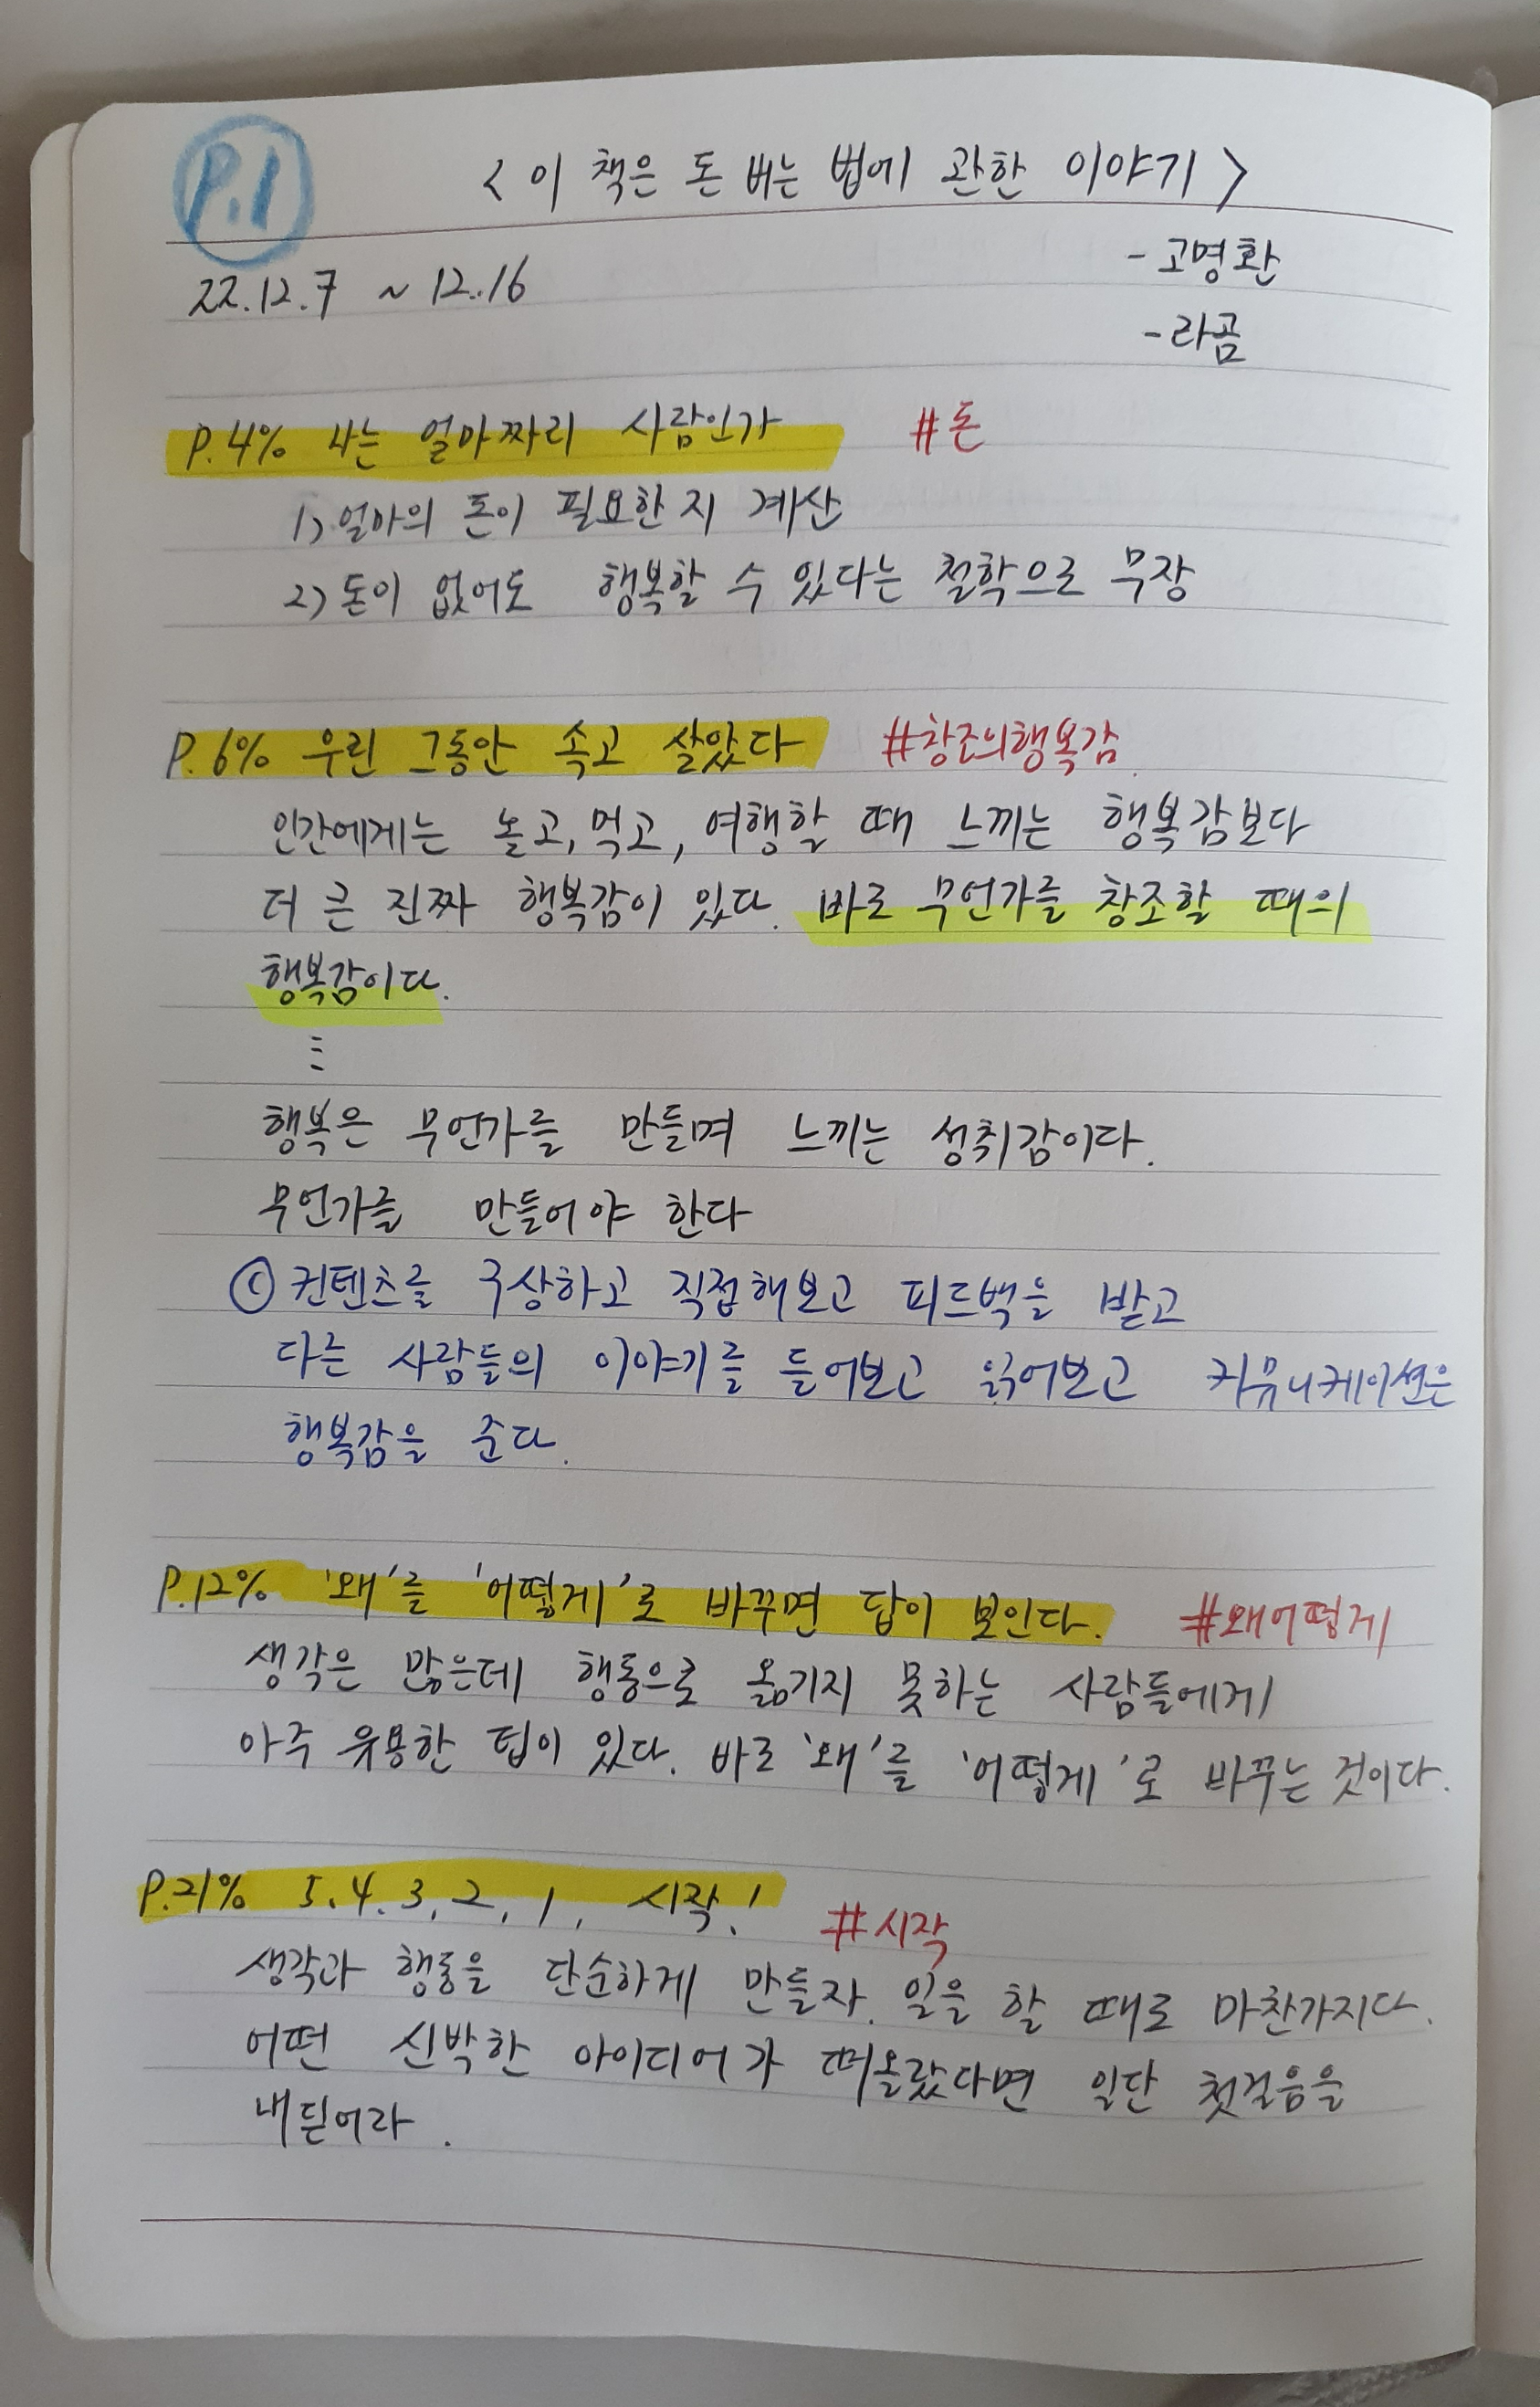 P.1
< 이 책은 돈 버는 법에 관한 이야기 >
- 고명환
22.12.7 ~ 12.16
- 라곰
P.4% 나는 얼마짜리 사람인가 #돈
1) 얼마의 돈이 필요한지 계산
2) 돈이 없어도 행복할 수 있다는 철학으로 무장
P.6% 우린 그동안 속고 살았다 #창조의행복감
인간에게는 놀고, 먹고, 여행할 때 느끼는 행복감보다
더 큰 진짜 행복감이 있다. 바로 무언가를 창조할 때의
행복감이다.
⋮
행복은 무언가를 만들며 느끼는 성취감이다.
무언가를 만들어야 한다
ⓒ 컨텐츠를 구상하고 직접해보고 피드백을 받고
다른 사람들의 이야기를 들어보고 읽어보고 커뮤니케이션은
행복감을 준다.
P.12% '왜'를 '어떻게'로 바꾸면 답이 보인다. #왜어떻게
생각은 많은데 행동으로 옮기지 못하는 사람들에게
아주 유용한 팁이 있다. 바로 '왜'를 '어떻게'로 바꾸는 것이다.
P.21% 5. 4. 3. 2, 1, 시작! #시작
생각과 행동을 단순하게 만들자. 일을 할 때로 마찬가지다.
어떤 신박한 아이디어가 떠올랐다면 일단 첫걸음을
내딛어라.